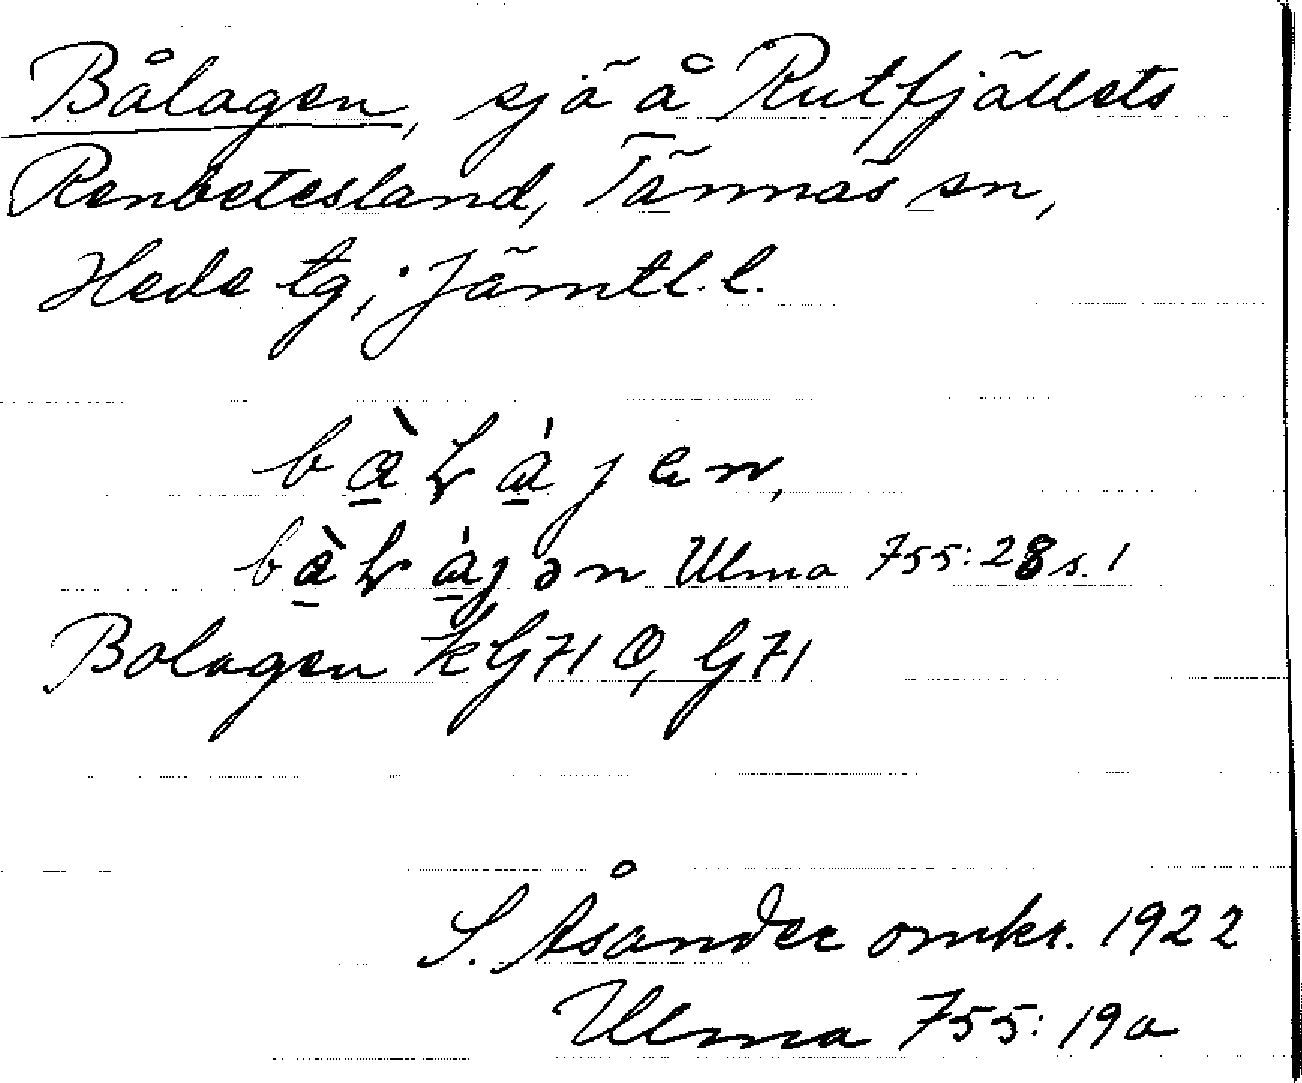 Bålagen, sjö å Rutfjällets
Renbetesland, Tännäs sn,
Hede tg, Jämtl. l.
Ulma 755:28 s. 1
Bolagen kG71 Ö, G71
S. Åsander omkr. 1922
Ulma 755:19a